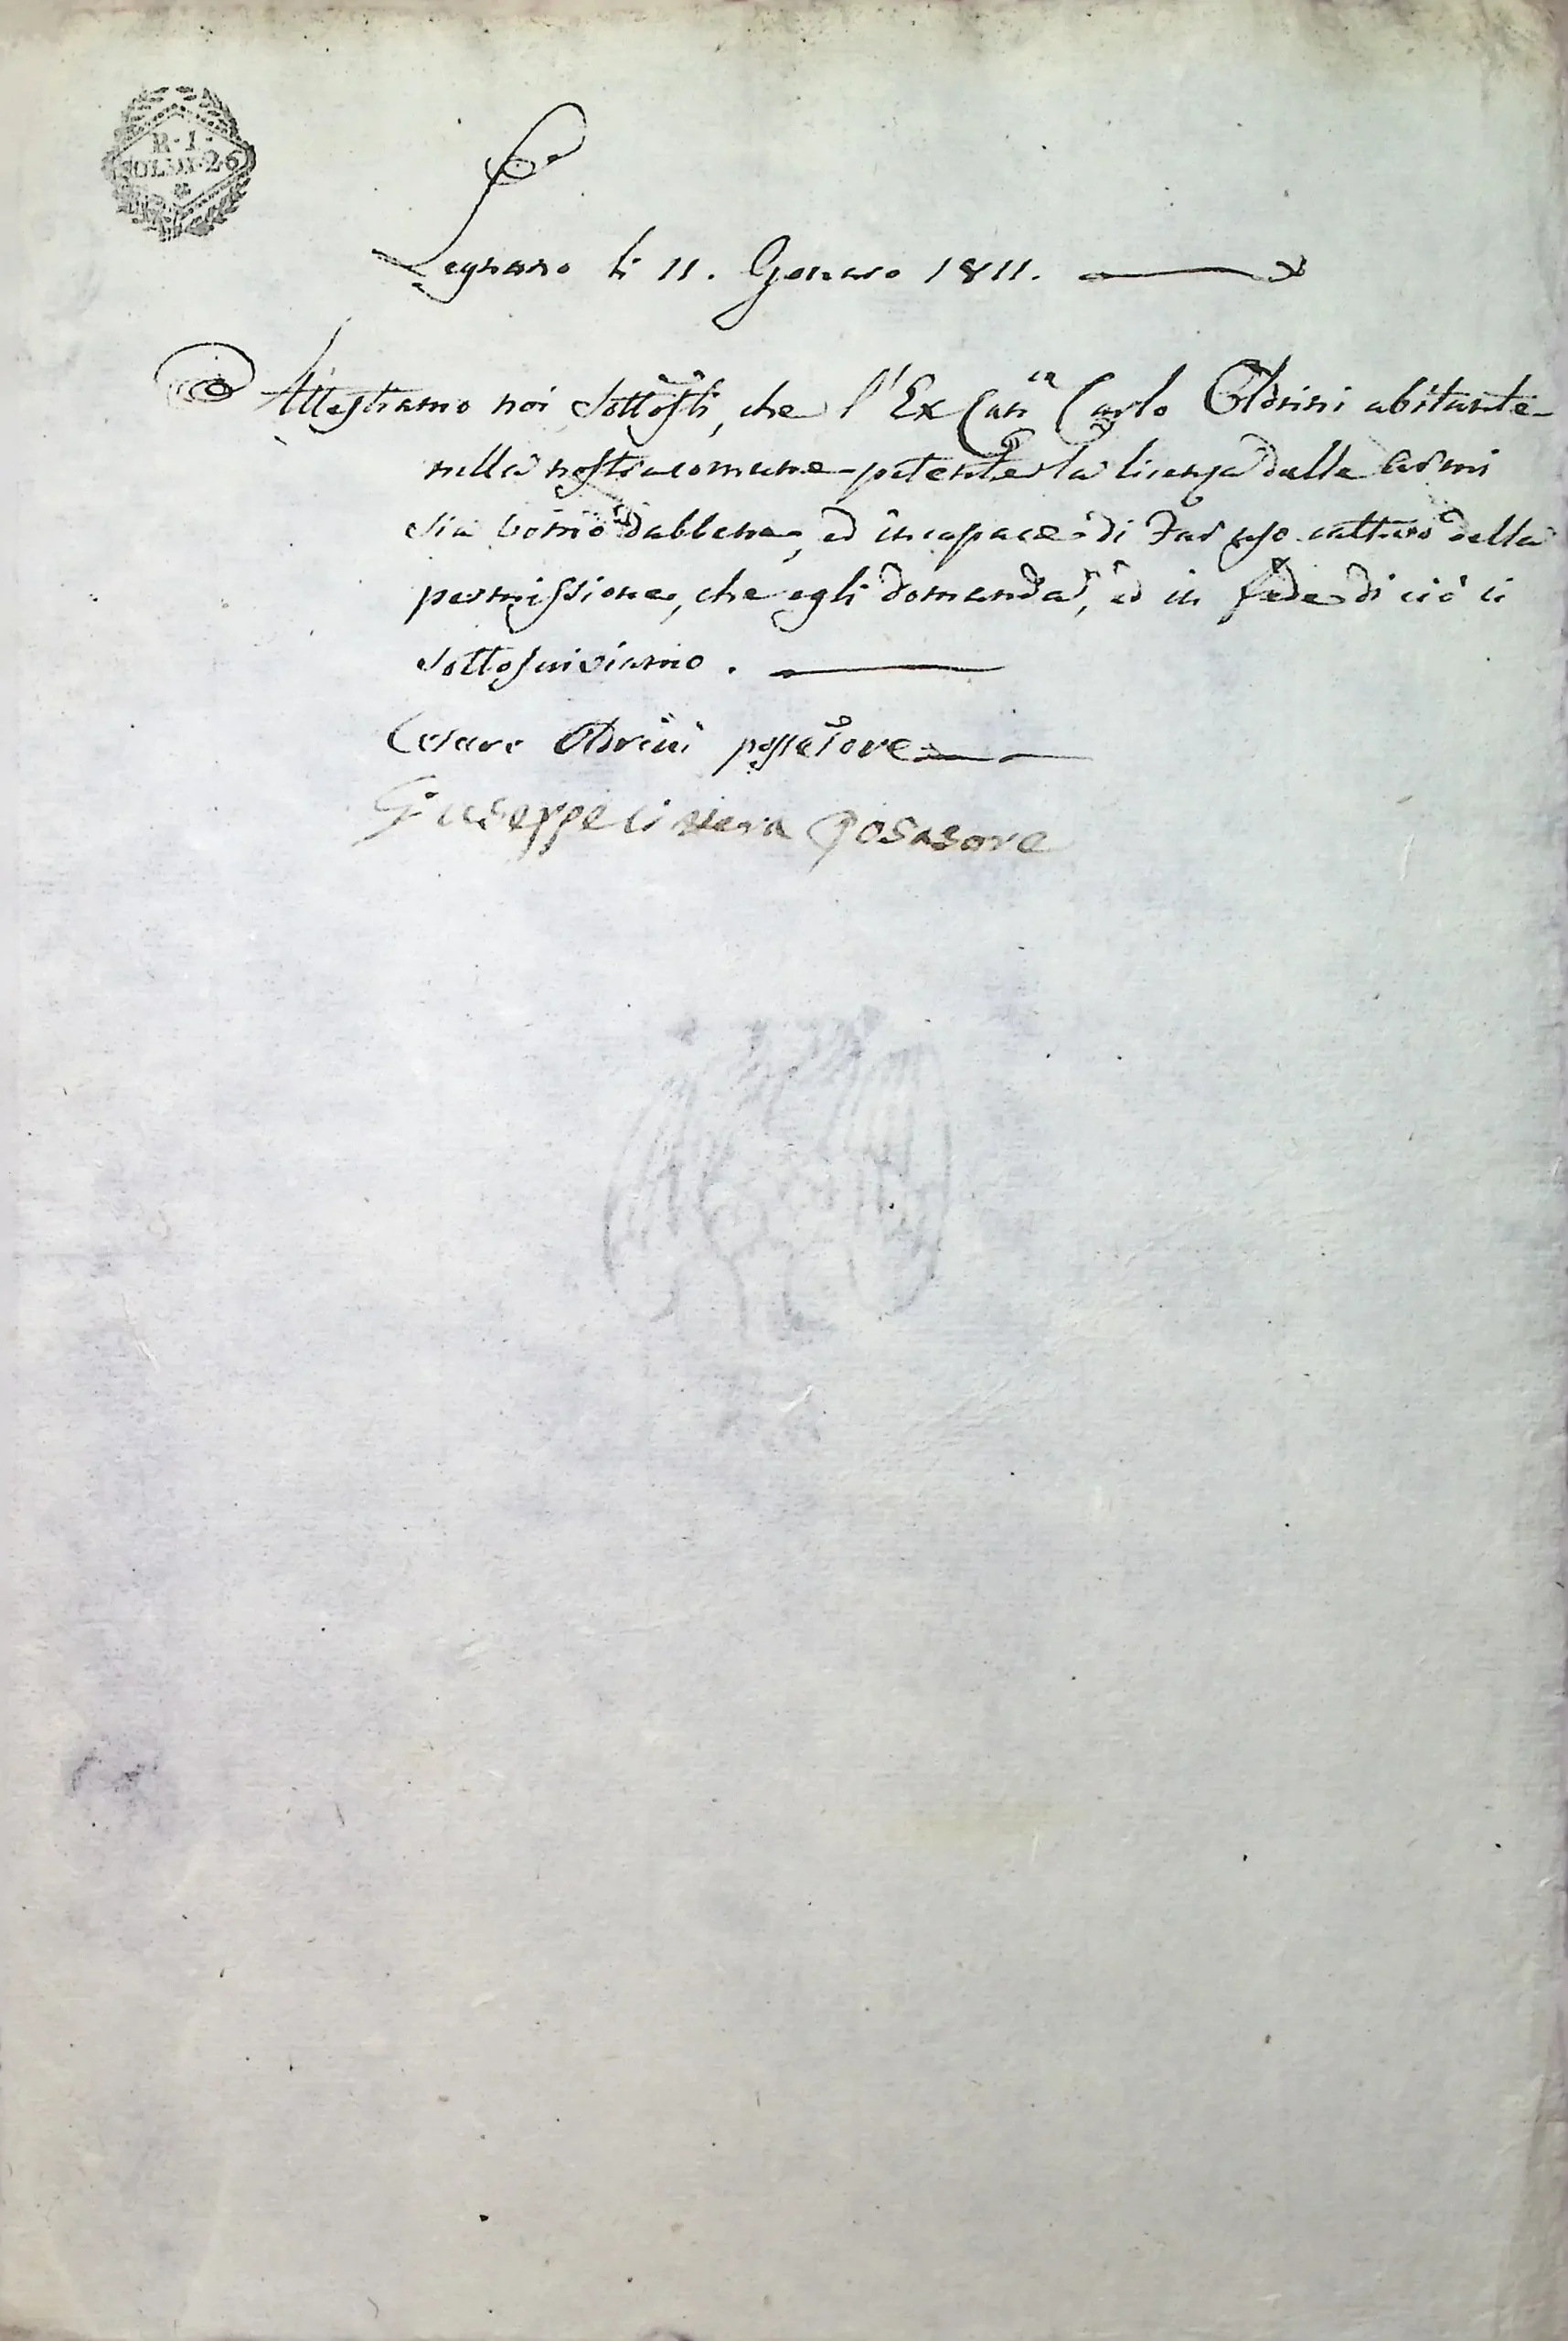 R. I.
SOLDI 26
Legnano li 11. Genaro 1811.
Attestiamo noi Sottosti, che l'Ex Can.co Carlo Oldrini abitante
nella nostra comune petente la licenza dalle armi
sia uomo dabbene, ed incapace di far uso cattivo della
permissione, che egli domanda, ed in fede di ciò ci
sottoscriviamo.
Cesare Oldrini possessore
Giuseppe